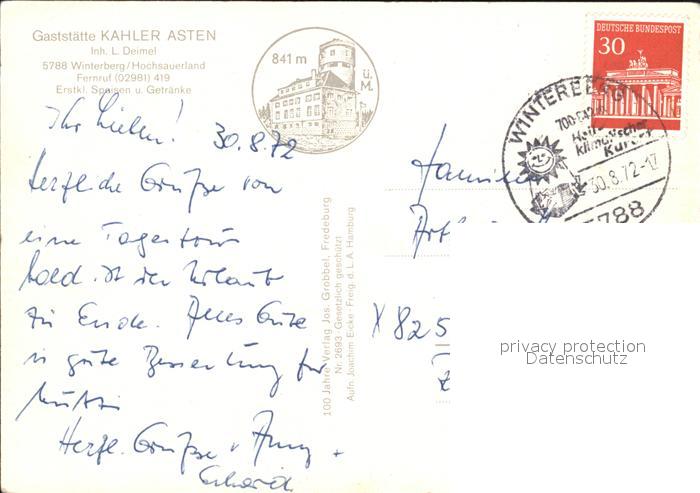 Gaststätte KAHLER ASTEN
Inh. L. Deimel
5788 Winterberg/Hochsauerland
Fernruf (02981) 419
Erstkl. Speisen u. Getränke
841 m
ü.
M.
DEUTSCHE BUNDESPOST
30
WINTERBERG
700-
Heil-
klimatischer
Kurort
30.8.72-17
5788
Ihr Lieben! 30.8.72
Herzliche Grüße von
eine Tagestour
bald ist der Urlaub
zu Ende. Alles Gute
u gute Besserung für
Mutti
Herzl. Grüße v Anny +
Erhard
100 Jahre Verlag Jos. Grobbel, Fredeburg
Nr. 2693 · Gesetzlich geschützt
Aufn. Joachim Eicke · Freig. d. L.A. Hamburg
X 825
privacy protection
Datenschutz